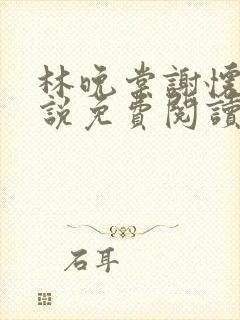 林晚棠謝懷
說免費閱讀
石耳